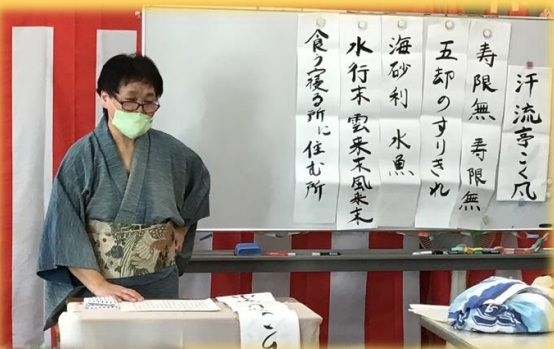 汗流亭こく風
寿限無 寿限無
五却のすりきれ
海砂利 水魚
水行末 雲来末風来末
食う寝る所に住む所